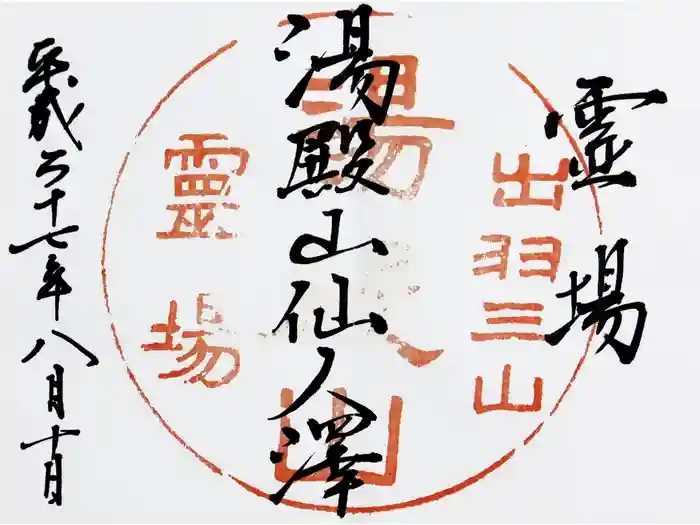 霊場
湯殿山仙ノ澤
平成二十七年八月十日
出羽三山
湯殿山
靈場